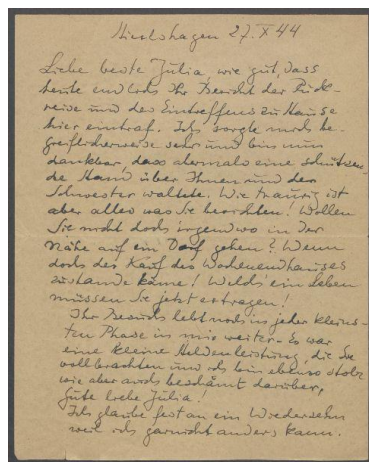 27. X 44
Liebe beste Julia, wie gut, dass
heute endlich Ihr Bericht der Rück-
reise und des Eintreffens zu Hause
hier eintraf. Ich sorgte mich be-
greiflicherweise sehr und bin nun
dankbar, dass abermals eine schützen-
de Hand über Ihnen und der
Schwester waltete. Wie traurig ist
aber alles was Sie berichten! Wollen
Sie nicht doch irgendwo in der
Nähe auf ein Dorf gehen? Wenn
doch der Kauf des Wochenendhauses
zustande käme! Welch ein Leben
müssen Sie jetzt ertragen!
Ihr Besuch lebt noch in jeder kleins-
ten Phase in mir weiter - Es war
eine kleine Heldenleistung, die Sie
vollbrachten und ich bin ebenso stolz
wie aber auch beschämt darüber,
gute liebe Julia!
Ich glaube fest an ein Wiedersehn
weil ich garnicht anders kann.